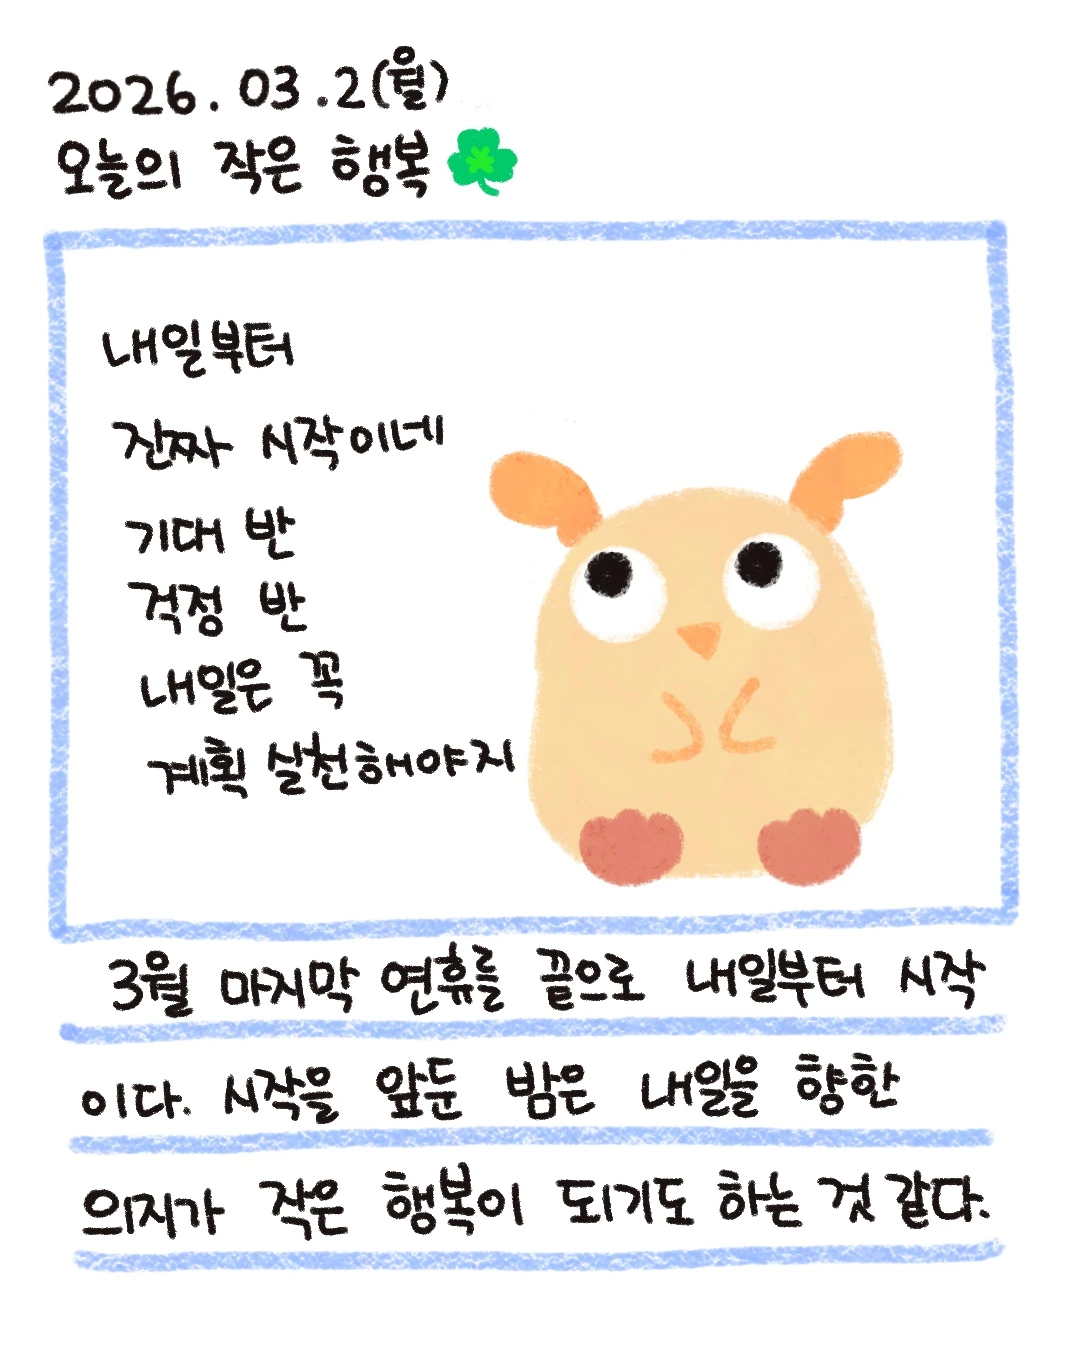 2026.03.2(월)
오늘의 작은 행복
내일부터
진짜 시작이네
기대 반
걱정 반
내일은 꼭
계획 실천해야지
3월 마지막 연휴를 끝으로 내일부터 시작
이다. 시작을 앞둔 밤은 내일을 향한
의지가 작은 행복이 되기도 하는 것 같다.